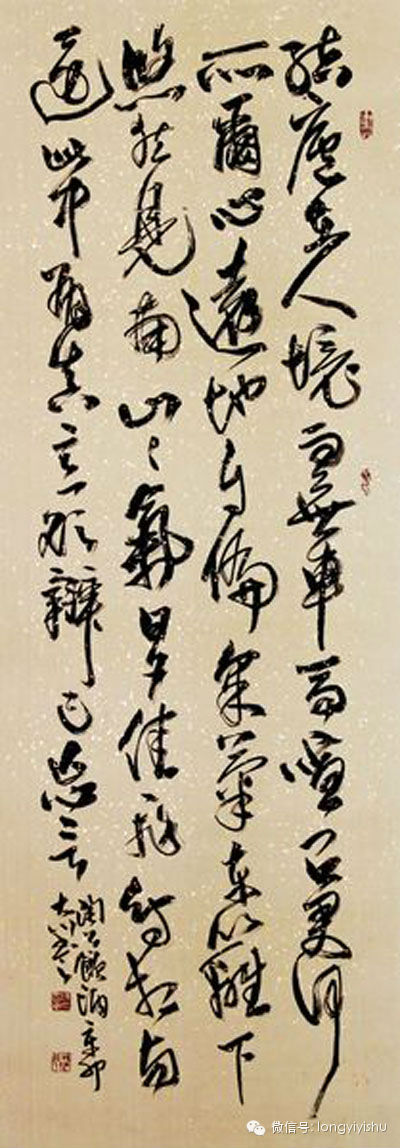 結廬在人境而無車馬喧問君何
能爾心遠地自偏采菊東籬下
悠然見南山々氣日夕佳飛鳥相與
還此中有真意欲辯已忘言
陶公飲酒辛卯
微信号: longyiyishu